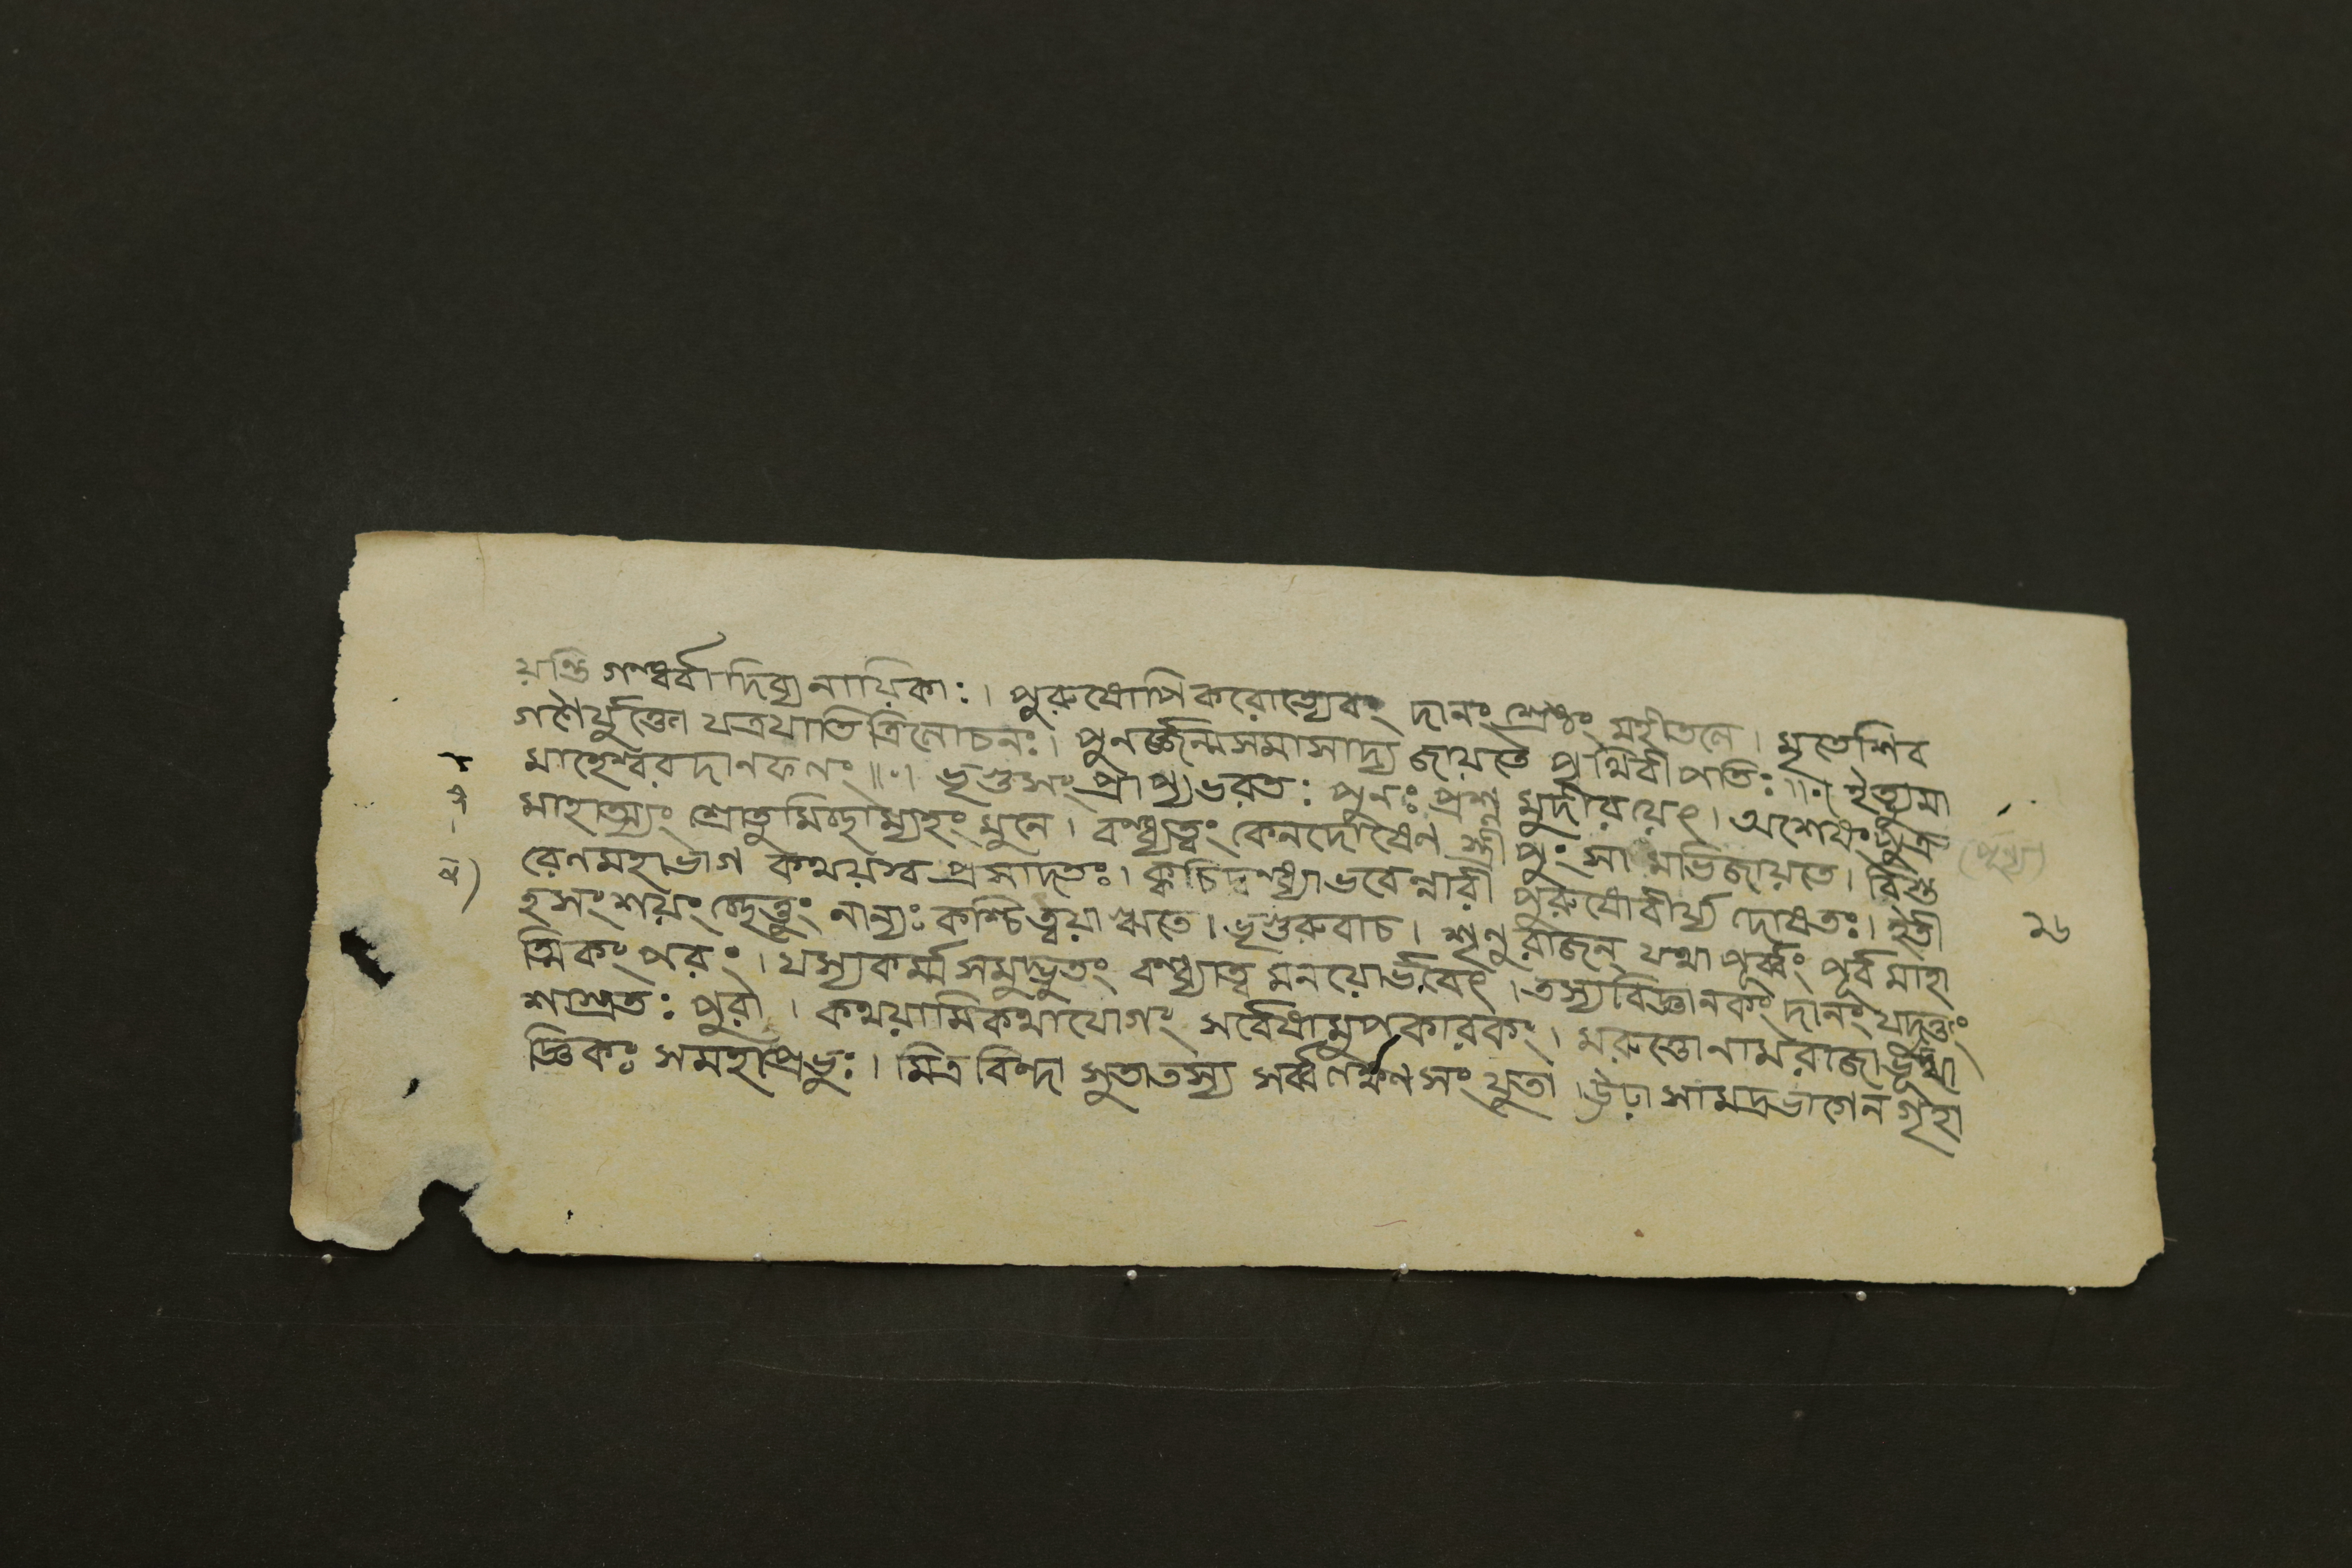 যন্তি গন্ধর্ব্বাদিব্যনায়িকাঃ। পুরুষোপিকরোত্যেবং দানং শ্রেষ্ঠং মহীতলে। মৃতেশিব
গণৈর্যুক্তো যত্রযাতি ত্রিলোচনঃ। পুনর্জ্জন্মসমাসাদ্য জায়তে পৃথিবীপতিঃ॥ ইত্যুমা
মাহেশ্বরদানফলং॥ ভৃগুসংপ্রাপ্যভরতঃ পুনঃ প্রশ্ন মুদীরয়েৎ। অশেষং পুত্র
মাহাত্ম্যং শ্রোতুমিচ্ছাম্যহং মুনে। বন্ধ্যত্বং কেনদোষেণ স্ত্রী পুংসা মভিজায়তে। বিশু
রেণমহাভাগ কথয়স্ব প্রসাদতঃ। ক্বচিদ্বন্ধ্যাভবেন্নারী পুরুষোবীর্য্য দোষতঃ। ইতী
হসংশয়ং চ্ছেত্তুং নান্যঃ কশ্চিত্ত্বয়া ঋতে। ভৃগুরুবাচ। শৃণু রাজন্ যথা পূর্ব্বং পূর্ব মাহা
ত্মিকং পরং। যস্যকর্ম্ম সমুদ্ভুতং বন্ধ্যাত্ব মনয়োর্ভবেৎ। তস্যবিজ্ঞানকং দানং যদত্তং
শাশ্রুতঃ পুরা। কথয়ামিকথাযোগং সর্বেষামুপকারকং। মরুত্তোনামরাজাভূ
জ্ঞিকঃ সমহাপ্রভুঃ। মিত্রবিন্দা সুতাতস্য সর্ব্বলক্ষণসংযুতা। ঊঢ়া সামদ্রভাগেন গৃহা
২৬